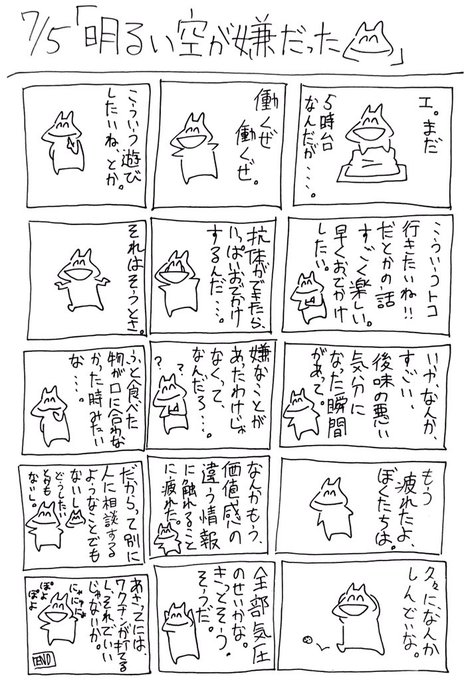 7/5「明るい空が嫌だった」
エ。まだ
5時台
なんだが…。
働くぜ
働くぜ。
こういう遊び
したいね、とか。
こういうトコ
行きたいね!!
だとかの話
すごく楽しい。
早くおでかけ
したい。
抗体ができたら、
いっぱいおでかけ
するんだ…。
それはそうとさ。
いや、なんか、
すごい、
後味の悪い
気分に
なった瞬間
があって。
嫌なことが
あったわけじゃ
なくって、
なんだろ…。
?
?
ふと食べた
物が口に合わな
かった時みたい
な…。
もう
疲れたよ、
ぼくたちは。
なんかもう、
価値感の
違う情報
に触れること
に疲れた。
だからって別に
人に相談する
ようなことでも
ないし。
どうしたい
とも
ないし
久々に、なんか
しんどいな。
全部気圧
のせいかな。
きっとそう。
そうだ。
あさってには、
ワクチンが打てる
し、それでいい
じゃないか。
にゃにゃ
ぽよ
ぽよ
END